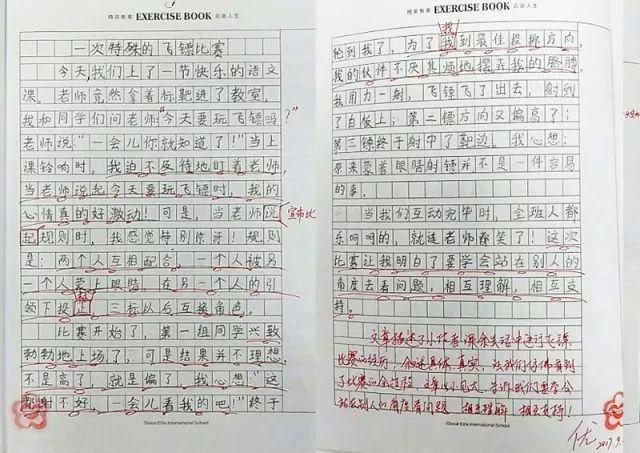 精英教育 EXERCISE BOOK 启迪人生
一次特殊的飞镖比赛
今天,我们上了一节快乐的语文
课。老师竟然拿着标靶进了教室,
我和同学们问老师:“今天要玩飞镖吗?”
老师说:“一会儿你就知道了!”当上
课铃响时,我迫不及待地盯着老师,
当老师说起今天要玩飞镖时,我的
心情真的好激动!可是,当老师说
宣布比
起规则时,我感觉特别惊讶!规则
是:两个人互相配合,一个人被另
一个人蒙上眼睛,在另一个人的引
领下投,三标以后互换角色。
比赛开始了,第一组同学兴致
勃勃地上场了,可是结果并不理想,
不是高了,就是偏了,我心想“这
都射不好,一会儿看我的吧!”终于
Global Elite International School
精英教育 EXERCISE BOOK 启迪人生
找
轮到我了,为了找到最佳投掷方向,
我的伙伴不厌其烦地摆弄我的胳膊,
我用力一射,飞镖飞了出去,射到
了白板上;第二镖方向又偏高了;
第三镖终于射中了靶边。我心想:
原来蒙着眼睛射镖并不是一件容易
的事。
当我们互动完毕时,全班人都
乐呵呵的,就连老师都笑了!这次
比赛让我明白了要学会站在别人的
角度去看问题,相互理解,相互支
持。
文章描述了小作者课余生活中进行飞镖
比赛的经历,叙述具体、真实,让我们仿佛看到
了比赛的全过程,文章以小见大,告诉我们要学会
站在别人的角度看问题,相互理解,相互支持!
优
2017.9.
Global Elite International School